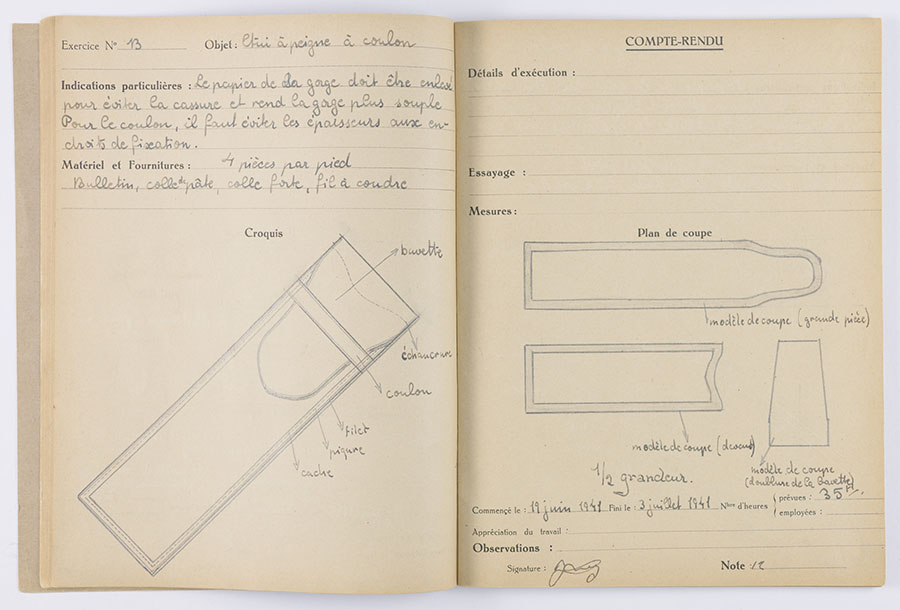 Exercice N° 13 Objet : Etui à peigne à coulon
Indications particulières : Le papier de la gorge doit être
pour éviter la cassure et rend la gorge plus souple
Pour le coulon, il faut éviter les épaisseurs aux en-
droits de fixation.
Matériel et Fournitures : 4 pièces par pied
Bulletin, colle de pâte, colle forte, fil à coudre
Croquis
bavette
échancrure
coulon
filet
piqure
cache
COMPTE-RENDU
Détails d'exécution :
Essayage :
Mesures :
Plan de coupe
modèle de coupe (grande pièce)
modèle de coupe (dessus)
modèle de coupe
(doublure de la bavette)
1/2 grandeur.
Commencé le : 19 juin 1941 Fini le : 3 juillet 1941 Nbre d'heures
prévues : 35
employées :
Appréciation du travail :
Observations :
Signature :
Note : 12